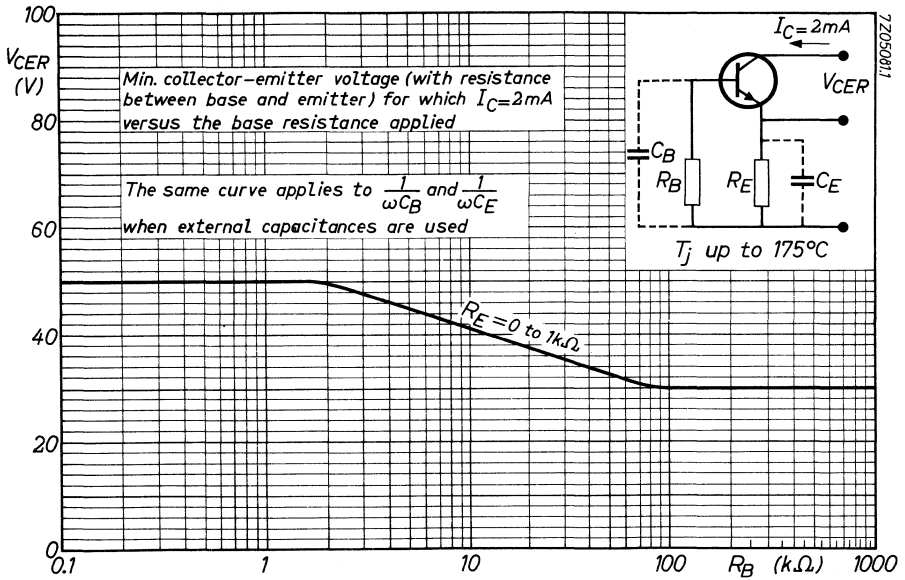 100
V_CER
(V)
80
60
40
20
0
Min. collector-emitter voltage (with resistance
between base and emitter) for which I_C=2mA
versus the base resistance applied
The same curve applies to 1/ωC_B and 1/ωC_E
when external capacitances are used
I_C=2mA
V_CER
C_B
R_B
R_E
C_E
T_j up to 175°C
7205081.1
R_E=0 to 1kΩ
0.1
1
10
100
R_B (kΩ)
1000